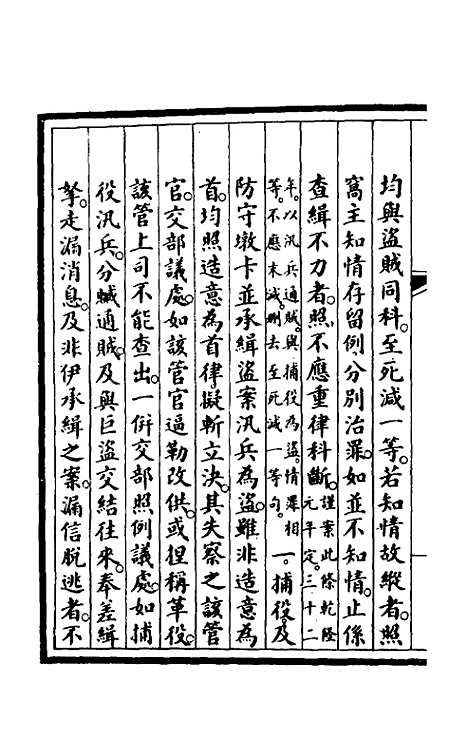 均與盜賊同科。至死減一等。若知情故縱者。照
窩主知情存留例分別治罪。如並不知情。止係
查緝不力者。照不應重律科斷。謹案此條乾隆元年定。三十二
年。以汛兵通賊。與捕役為盜。情罪相等。不應末減。刪去至死減一等句。一。捕役及
防守墩卡並承緝盜案汛兵為盜。雖非造意為
首。均照造意為首律。擬斬立決。其失察之該管
官。交部議處。如該管官逼勒改供。或捏稱革役。
該管上司不能查出。一併交部照例議處。如捕
役汛兵。分贓通賊。及與巨盜交結往來。奉差緝
拏。走漏消息。及非伊承緝之案。漏信脫逃者。不